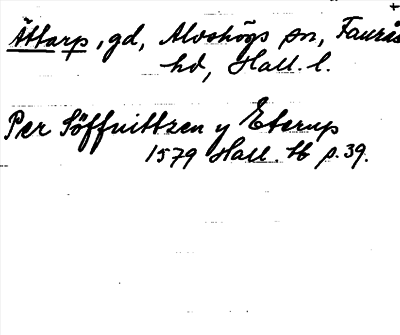 Ättarp, gd, Alvshögs sn, Faurås
hd, Hall. l.
Per Söffvittzen y Etarup
1579 Hall. tb p. 39.